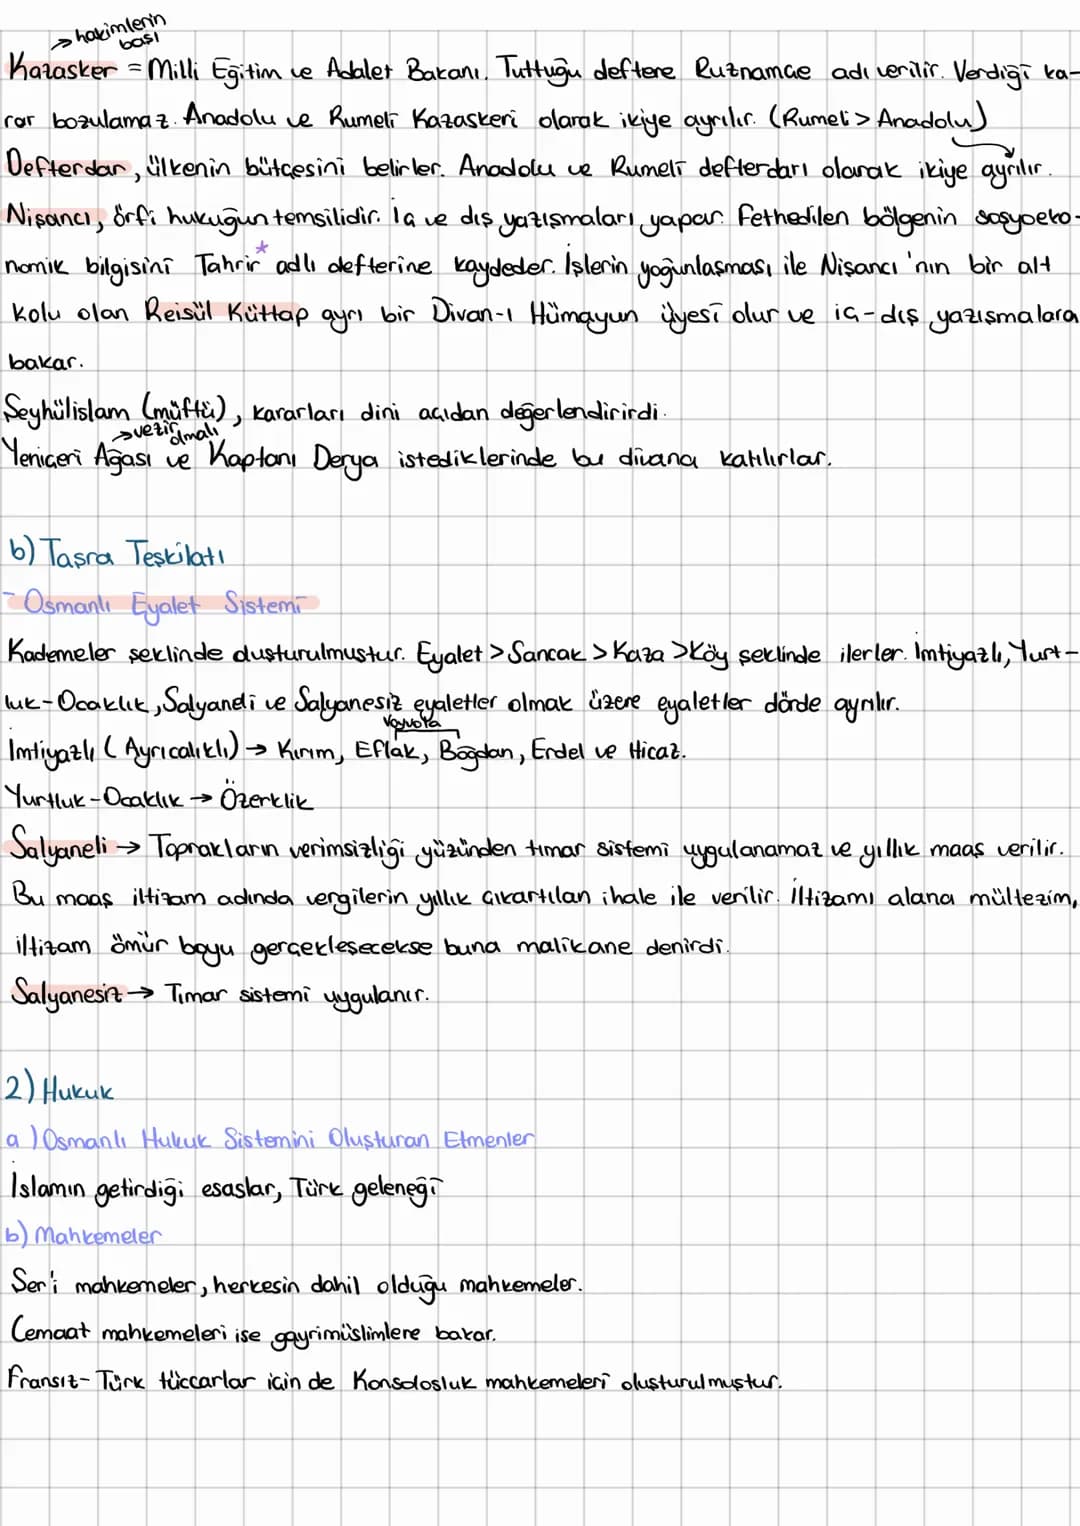 → hakimlerin
başı
Kazasker = Milli Eğitim ve Adalet Bakanı. Tuttuğu deftere Ruznamçe adı verilir. Verdiği ka-
rar bozulamaz. Anadolu ve Rumeli Kazaskeri olarak ikiye ayrılır. (Rumeli > Anadolu)
Defterdar, ülkenin bütçesini belirler. Anadolu ve Rumeli defterdarı olarak ikiye ayrılır.
Nişancı, örfi hukuğun temsilidir. İç ve dış yazışmaları yapar. Fethedilen bölgenin sosyoeko-
nomik bilgisini Tahrir* adlı defterine kaydeder. İşlerin yoğunlaşması ile Nişancı'nın bir alt
kolu olan Reisül Küttap ayrı bir Divan-ı Hümayun üyesi olur ve iç-dış yazışmalara
bakar.
Şeyhülislam (müftü), kararları dini açıdan değerlendirirdi.
→ vezir olmalı
Yeniçeri Ağası ve Kaptanı Derya istediklerinde bu divana katılırlar.
b) Taşra Teşkilatı
- Osmanlı Eyalet Sistemi
Kademeler şeklinde oluşturulmuştur. Eyalet > Sancak > Kaza > Köy şeklinde ilerler. İmtiyazlı, Yurt-
luk-Ocaklık, Salyandi ve Salyanesiz eyaletler olmak üzere eyaletler dörde ayrılır.
Voyvoda
İmtiyazlı (Ayrıcalıklı) → Kırım, Eflak, Boğdan, Erdel ve Hicaz.
Yurtluk-Ocaklık → Özerklik
Salyaneli → Toprakların verimsizliği yüzünden tımar sistemi uygulanamaz ve yıllık maaş verilir.
Bu maaş iltizam adında vergilerin yıllık çıkartılan ihale ile verilir. İltizamı alana mültezim,
iltizam ömür boyu gerçekleşecekse buna malikane denirdi.
Salyanesiz → Tımar sistemi uygulanır.
2) Hukuk
a) Osmanlı Hukuk Sistemini Oluşturan Etmenler
İslamın getirdiği esaslar, Türk geleneği
b) Mahkemeler
Şer'i mahkemeler, herkesin dahil olduğu mahkemeler.
Cemaat mahkemeleri ise gayrimüslimlere bakar.
Fransız-Türk tüccarlar için de Konsolosluk mahkemeleri oluşturulmuştur.